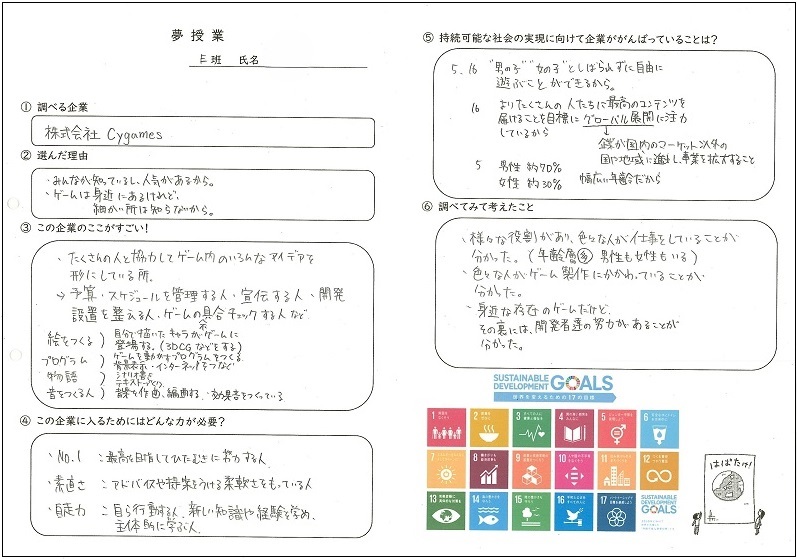 夢授業
E班 氏名
① 調べる企業
株式会社 Cygames
② 選んだ理由
・みんなが知っているし、人気があるから。
・ゲームは身近にあるけれど、
細かい所は知らないから。
③ この企業のここがすごい!
・たくさんの人と協力してゲーム内のいろんなアイデアを
形にしている所。
→予算・スケジュールを管理する人、宣伝する人、開発
設置を整える人、ゲームの具合チェックする人など
不
絵をつくる) 自分で描いたキャラがゲームに
登場する。(3DCGなどをする)
プログラム) ゲームを動かすプログラムをつくる。
背景表示・インターネットをつなぐ
物語) シナリオ書き
テキストづくり。
音をつくる人) 音楽を作曲、編曲する、効果音をつくっている
④ この企業に入るためにはどんな力が必要?
・No.1 :最高を目指してひたむきに努力する人
・素直さ :アドバイスや提案をうける柔軟さをもっている人
・自走力 :自ら行動する人、新しい知識や経験を学め、
主体的に学ぶ人。
⑤ 持続可能な社会の実現に向けて企業ががんばっていることは?
5.16 "男の子""女の子"としばられずに自由に
遊ぶことができるから。
16 よりたくさんの人たちに最高のコンテンツを
届けることを目標にグローバル展開に注力
しているから
↓
企業が国内のマーケット以外の
国や地域に進出し事業を拡大すること
5 男性 約70%
女性 約30%
幅広い年齢だから
⑥ 調べてみて考えたこと
・様々な役割があり、色々な人が仕事をしていることが
分かった。(年齢層㊂ 男性も女性もいる)
・色々な人がゲーム製作にかかわっていることが
分かった。
・身近な存在のゲームだけど、
その裏には、開発者達の努力があることが
分かった。
SUSTAINABLE
DEVELOPMENT GOALS
世界を変えるための17の目標
1 2 3 4 5 6
7 8 9 10 11 12
13 14 15 16 17
SUSTAINABLE
DEVELOPMENT
GOALS
はばたけ!